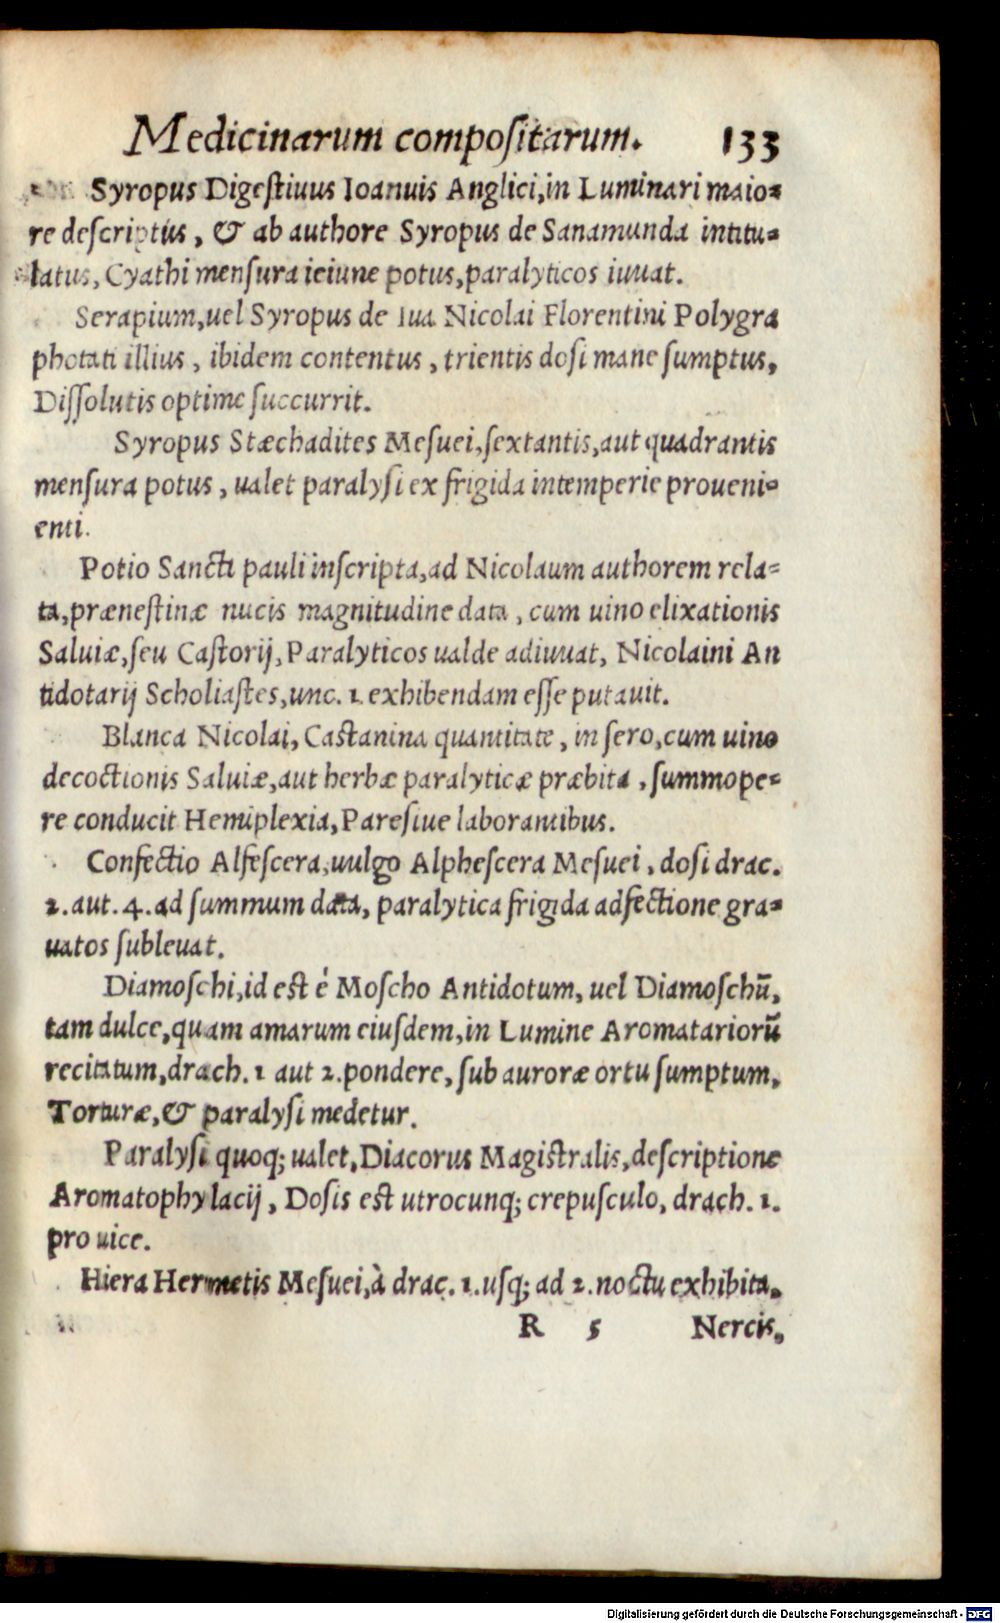 Medicinarum compoſitarum. 133
Syropus Digeſtiuus Ioanuis Anglici, in Luminari maio⸗
re deſcriptus, & ab authore Syropus de Sanamunda intitu⸗
latus, Cyathi menſura ieiune potus, paralyticos iuuat.
Serapium, uel Syropus de Iua Nicolai Florentini Polygra
photati illius, ibidem contentus, trientis doſi mane ſumptus,
Diſſolutis optime ſuccurrit.
Syropus Stæchadites Meſuei, ſextantis, aut quadrantis
menſura potus, ualet paralyſi ex frigida intemperie proueni⸗
enti.
Potio Sancti pauli inſcripta, ad Nicolaum authorem rela⸗
ta, præneſtinæ nucis magnitudine data, cum uino elixationis
Saluiæ, ſeu Caſtorij, Paralyticos ualde adiuuat, Nicolaini An
tidotarij Scholiaſtes, unc. 1. exhibendam eſſe putauit.
Blanca Nicolai, Caſtanina quantitate, in ſero, cum uino
decoctionis Saluiæ, aut herbæ paralyticæ præbita, ſummope⸗
re conducit Hemiplexia, Pareſiue laborantibus.
Confectio Alfeſcera, uulgo Alpheſcera Meſuei, doſi drac.
2. aut. 4. ad ſummum data, paralytica frigida adfectione gra⸗
uatos ſubleuat.
Diamoſchi, id eſt è Moſcho Antidotum, uel Diamoſchū,
tam dulce, quam amarum eiuſdem, in Lumine Aromatariorū
recitatum, drach. 1 aut 2. pondere, ſub auroræ ortu ſumptum,
Torturæ, & paralyſi medetur.
Paralyſi quoq; ualet, Diacorus Magiſtralis, deſcriptione
Aromatophylacij, Doſis eſt utrocunq; crepuſculo, drach. 1.
pro uice.
Hiera Hermetis Meſuei, à drac. 1. uſq; ad 2. noctu exhibita,
R 5 Neruis,
Digitalisierung gefördert durch die Deutsche Forschungsgemeinschaft - DFG